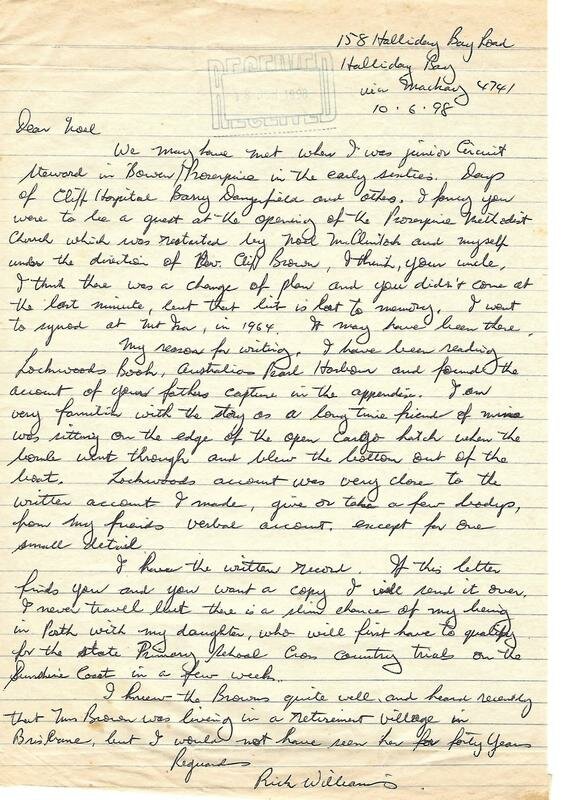 158 Halliday Bay Road
Halliday Bay
via Mackay 4741
10.6.98
RECEIVED
1998
RECEIVED
Dear Noel
We may have met when I was junior Circuit
Steward in Bowen/Proserpine in the early sixties. Days
of Cliff Hospital Barry Dangerfield and othes. I fancy you
were to be a guest at the opening of the Proserpine Methodist
Church which was restarted by Noel McClintock and myself
under the direction of Rev. Cliff Brown, I think, your uncle,
I think there was a change of plan and you didn't come at
the last minute, but that bit is lost to memory. I went
to synod at Mt Isa, in 1964. It may have been there.
My reason for writing. I have been reading
Lockwoods Book, Australias Pearl Harbour and found the
account of your fathers capture in the appendix. I am
very familiar with the story as a long time friend of mine
was sitting on the edge of the open cargo hatch when the
bomb went through and blew the bottom out of the
boat. Lockwoods account was very close to the
written account I made, give or take a few
from my friends verbal account. except for one
small detail
I have the written record. If this letter
finds you and you want a copy I will send it over.
I never travel but there is a slim chance of my being
in Perth with my daughter, who will first have to qualify
for the state Primary School Cross Country trials on the
Sunshine Coast in a few weeks.
I knew the Browns quite well, and heard recently
that Mrs Brown was living in a retirement village in
Brisbane, but I would not have seen her for forty years
Reguards
Rick Williams